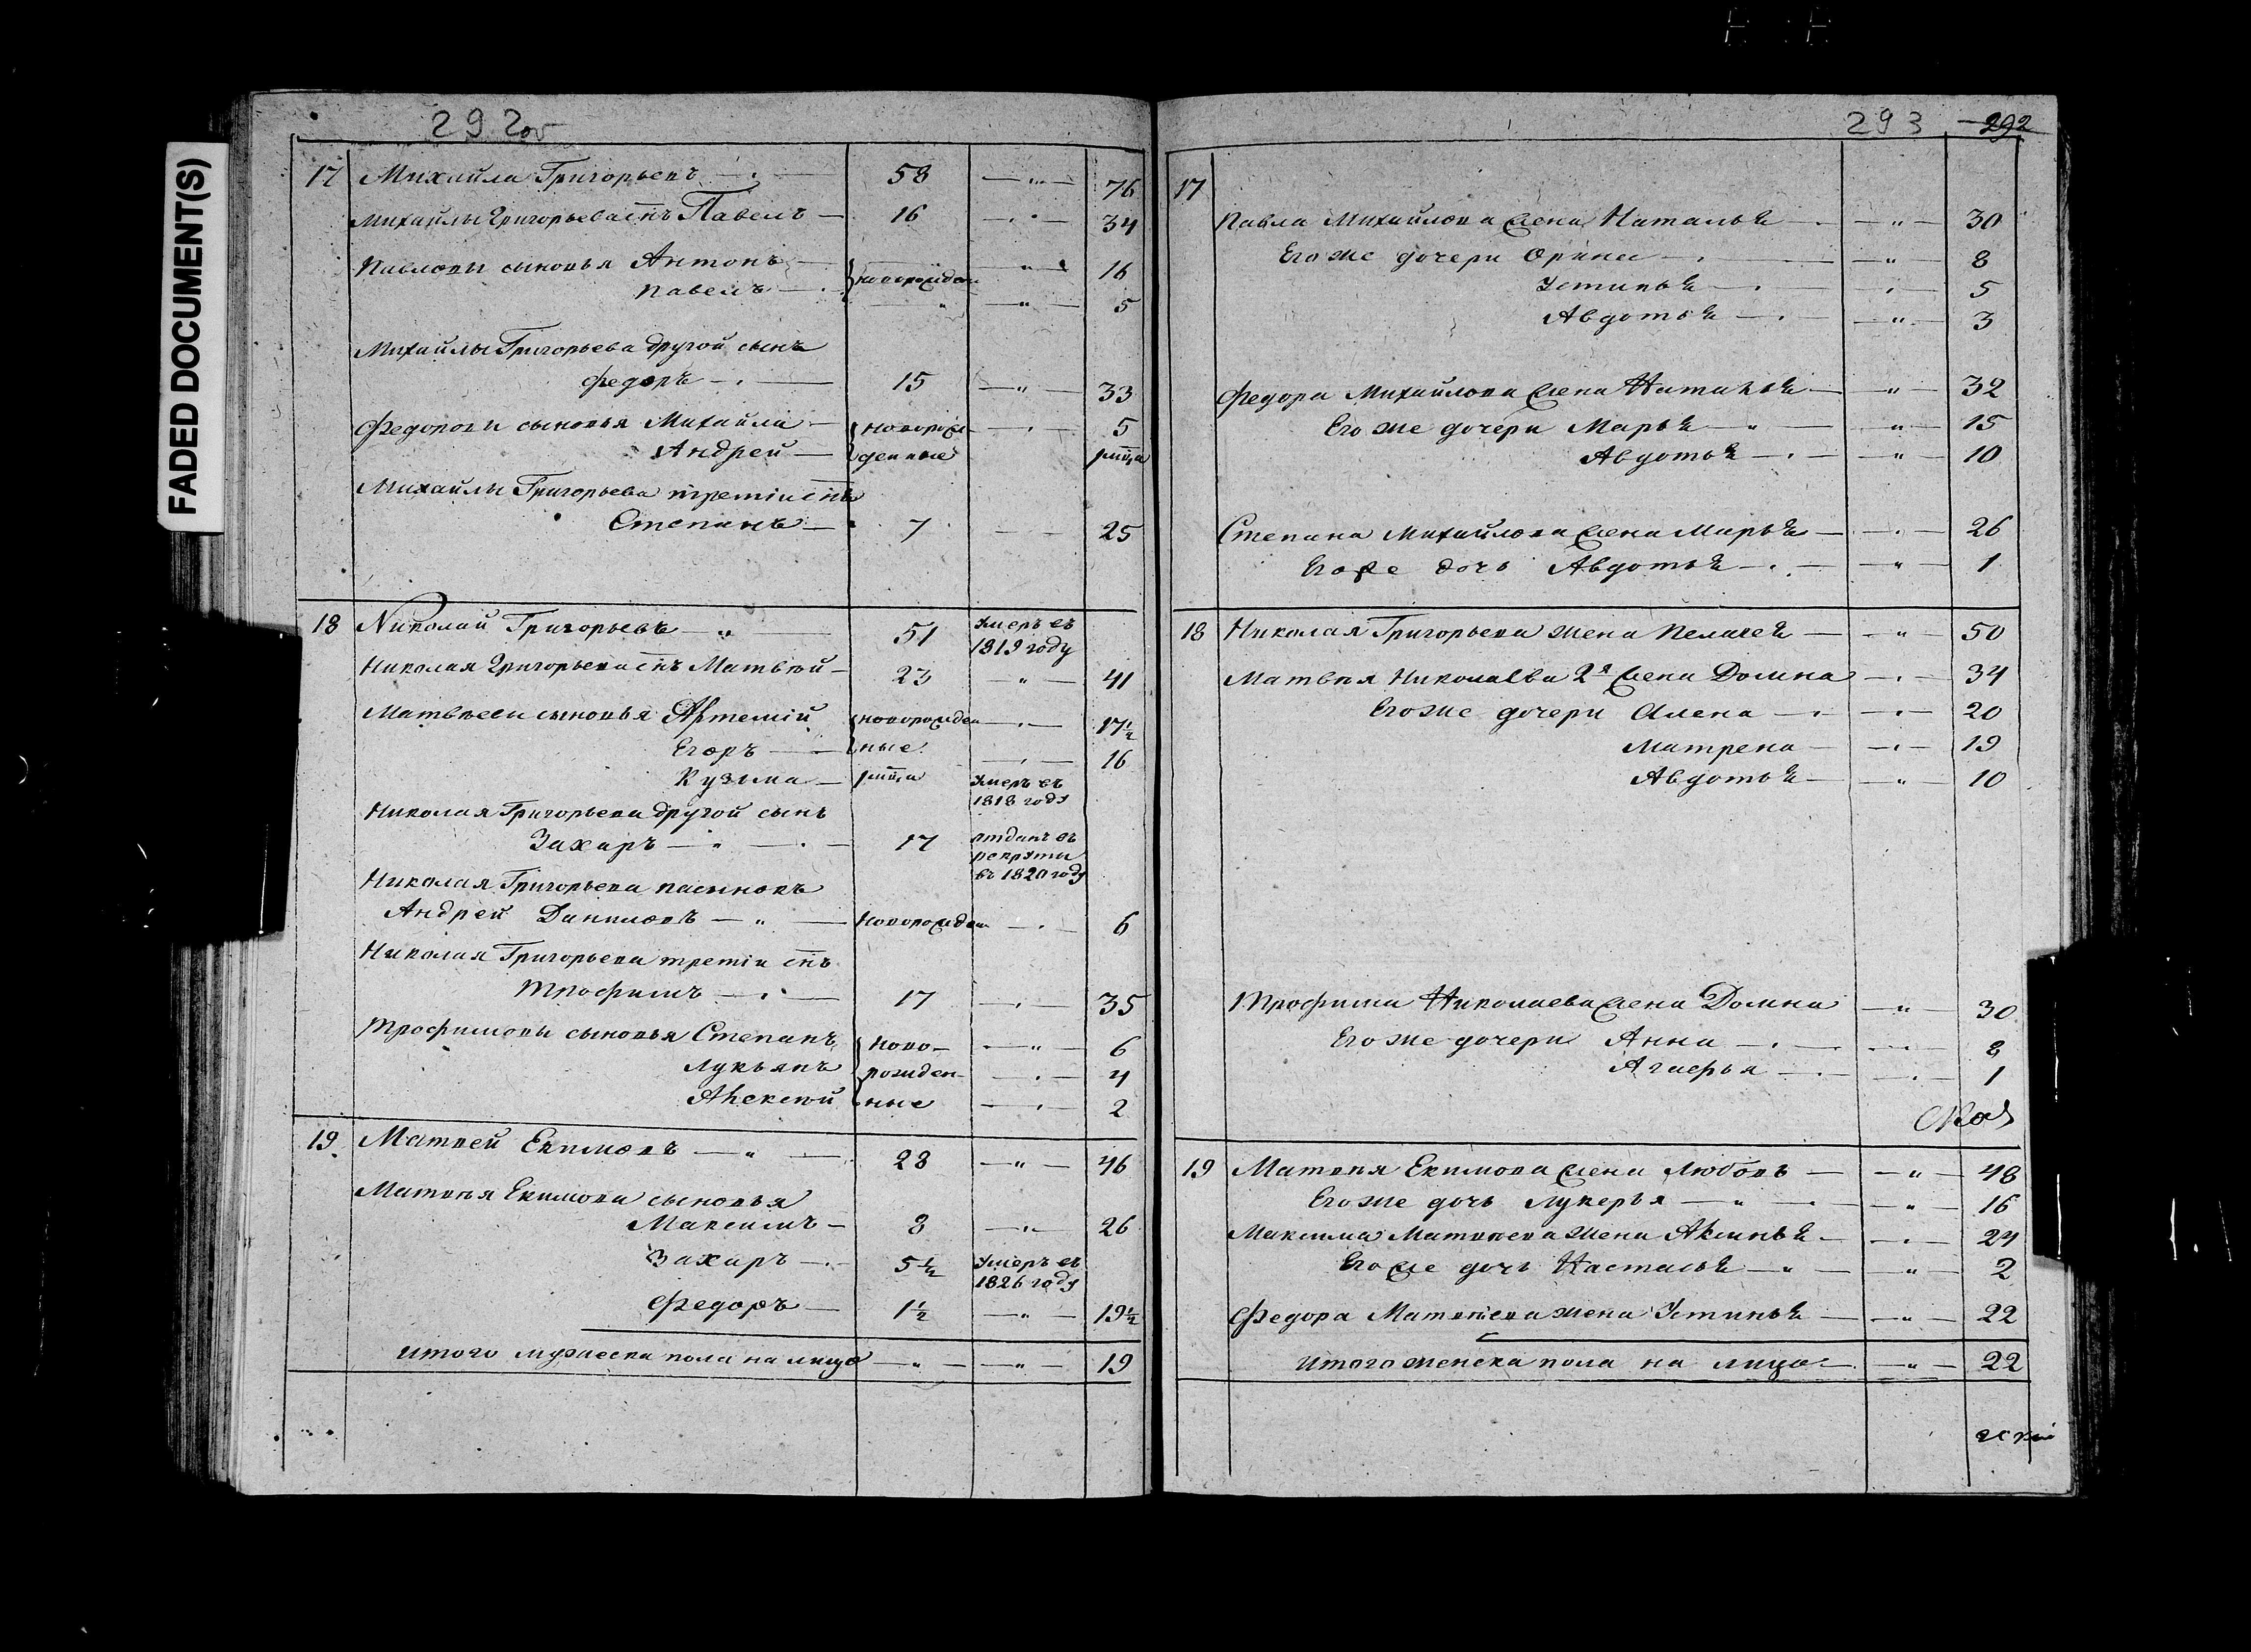 FADED DOCUMENT(S)
292об
17 Михайла Григорьевъ 58 76
Михайлы Григорьева снъ Павелъ 16 34
Павловы сыновья Антонъ новорожден 16
Павелъ 5
Михайлы Григорьева другой сынъ
Федоръ 15 33
Федоровы сыновья Михайла новорож- 5
Андрей денные
Михайлы Григорьева третіи снъ
Степанъ 7 25
18 Николай Григорьевъ 51 умеръ въ 1819 году
Николая Григорьева снъ Матвѣй 23 41
Матвѣевы сыновья Артемій новорожден 17 1/2
Егоръ ные 16
Кузьма умеръ въ 1818 году
Николая Григорьева другой сынъ
Захаръ 17 отданъ въ рекруты въ 1820 году
Николая Григорьева пасынокъ
Андрей Даниловъ новорожден 6
Николая Григорьева третіи снъ
Трофимъ 17 35
Трофимовы сыновья Степанъ ново- 6
Лукьянъ рожден- 4
Алексѣй ные 2
19 Матвей Екимовъ 28 46
Матвѣя Екимова сыновья
Максимъ 8 26
Захаръ 5 1/2 умеръ въ 1826 году
Федоръ 1 1/2 19 1/2
итого мужеска пола на лицо 19
293 292
17
Павла Михайлова жена Наталья 30
Его же дочери Орина 8
Устинья 5
Авдотья 3
Федора Михайлова жена Наталья 32
Его же дочери Марья 15
Авдотья 10
Степана Михайлова жена Марья 26
Его же дочь Авдотья 1
18 Николая Григорьева жена Пелагея 50
Матвѣя Николаева 2я жена Домна 34
Его же дочери Алена 20
Матрена 19
Авдотья 10
Трофима Николаева жена Домна 30
Его же дочери Анна 8
Агафья 1
19 Матвѣя Екимова жена Любовъ 48
Его же дочь Лукерья 16
Максима Матвѣева жена Аксинья 24
Его же дочь Настасья 2
Федора Матвѣева жена Устинья 22
итого женска пола на лицо 22